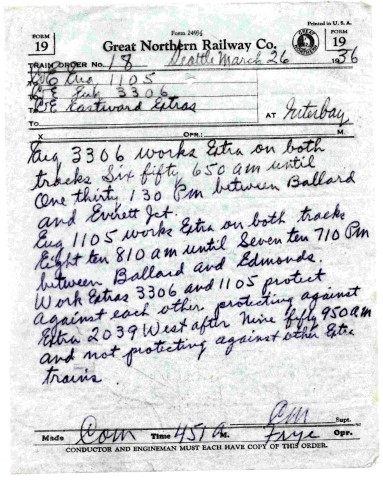 Printed in U. S. A.
Form 249½
FORM 19
Great Northern Railway Co.
FORM 19
GREAT NORTHERN
TRAIN ORDER No. 18 Seattle March 26 1936
To C&E Eng 1105
To C&E Eng 3306
To C&E Eastward Extras
To AT Interbay
X OPR.; M.
Eng 3306 works Extra on both
tracks Six fifty 650 am until
One thirty 130 Pm between Ballard
and Everett Jct.
Eng 1105 works Extra on both tracks
Eight ten 810 am until Seven ten 710 Pm
between Ballard and Edmonds.
Work Extras 3306 and 1105 protect
against each other protecting against
Extra 2039 West after Nine fifty 950 am
and not protecting against other Extra
trains.
Supt.
Made Com Time 451 A M. Frye Opr.
CONDUCTOR AND ENGINEMAN MUST EACH HAVE COPY OF THIS ORDER.